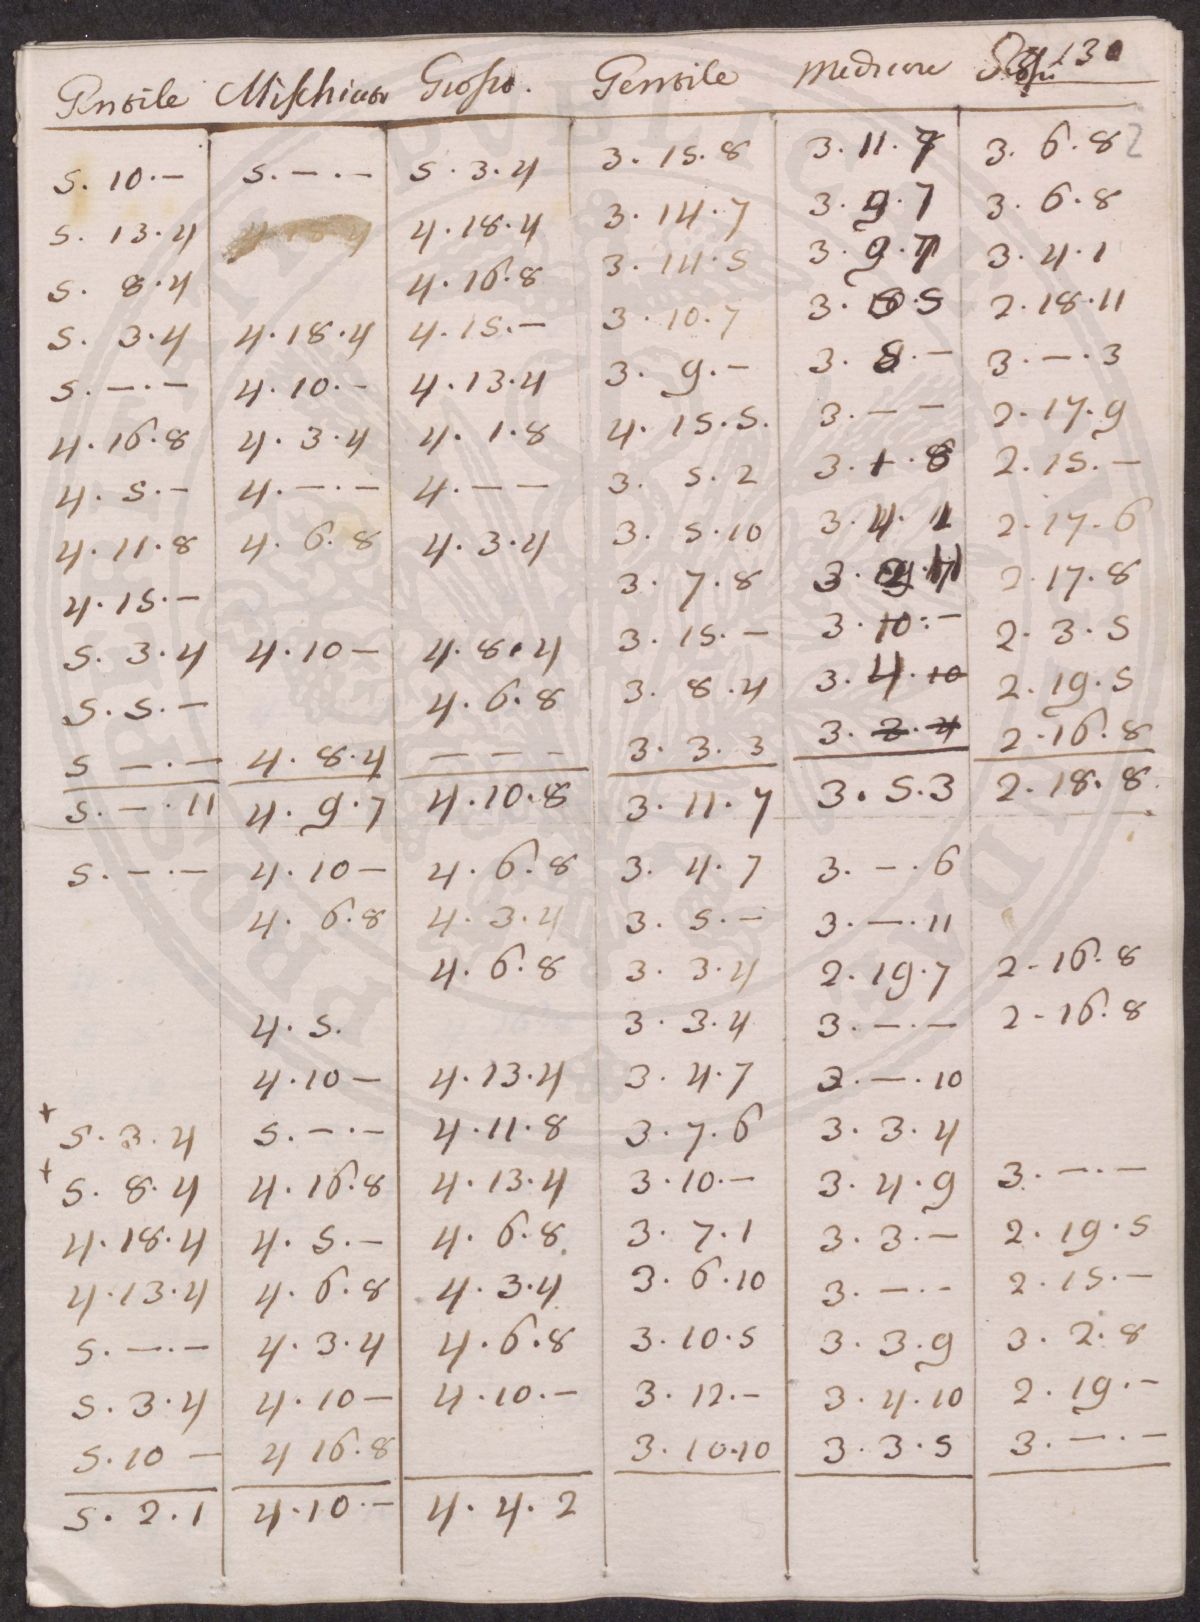 Gentile Mischiato Grosso. Gentile Mediocre 130
5. 10. — 5. — . — 5. 3. 4 3. 15. 8 3. 11. 7 3. 6. 8 2
5. 13. 4 4. 18. 4 4. 18. 4 3. 14. 7 3. 9. 7 3. 6. 8
5. 8. 4 4. 16. 8 3. 14. 5 3. 9. 7 3. 4. 1
5. 3. 4 4. 18. 4 4. 15. — 3. 10. 7 3. 8. 5 2. 18. 11
5. — . — 4. 10. — 4. 13. 4 3. 9. — 3. 8. — 3. — . 3
4. 16. 8 4. 3. 4 4. 1. 8 4. 15. 5. 3. — — 2. 17. 9
4. 5. — 4. — . — 4. — — 3. 5. 2 3. 1. 8 2. 15. —
4. 11. 8 4. 6. 8 4. 3. 4 3. 5. 10 3. 4. 2. 17. 6
4. 15. — 3. 7. 8 3. 2. 17. 8
5. 3. 4 4. 10 — 4. 8. 4 3. 15. — 3. 10. — 2. 3. 5
5. 5. — 4. 6. 8 3. 8. 4 3. 4. 10 2. 19. 5
5 — . — 4. 8. 4 — — — 3. 3. 3 3. 2. 4 2. 16. 8
5. — . 11 4. 9. 7 4. 10. 8 3. 11. 7 3. 5. 3 2. 18. 8
5. — . — 4. 10 — 4. 6. 8 3. 4. 7 3. — . 6
4. 6. 8 4. 3. 4 3. 5. — 3. — . 11
4. 6. 8 3. 3. 4 2. 19. 7 2. 16. 8
4. 5. 3. 3. 4 3. — . — 2. 16. 8
4. 10 — 4. 13. 4 3. 4. 7 3. — . 10
+ 5. 3. 4 5. — . — 4. 11. 8 3. 7. 6 3. 3. 4
+ 5. 8. 4 4. 16. 8 4. 13. 4 3. 10. — 3. 4. 9 3. — . —
4. 18. 4 4. 5. — 4. 6. 8 3. 7. 1 3. 3. — 2. 19. 5
4. 13. 4 4. 6. 8 4. 3. 4 3. 6. 10 3. — . — 2. 15. —
5. — . — 4. 3. 4 4. 6. 8 3. 10. 5 3. 3. 9 3. 2. 8
5. 3. 4 4. 10 — 4. 10. — 3. 12. — 3. 4. 10 2. 19. —
5. 10 — 4 16. 8 3. 10. 10 3. 3. 5 3. — . —
5. 2. 1 4. 10. — 4. 4. 2